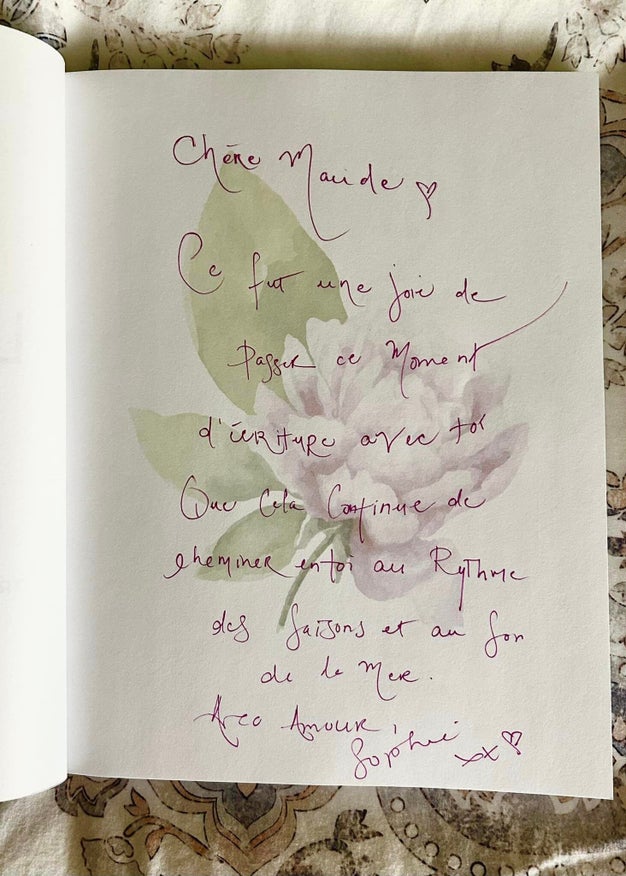 Chère Maude ♡
Ce fut une joie de
passer ce Moment
d'écriture avec toi
Que Cela Continue de
cheminer en toi au Rythme
des saisons et au son
de la Mer.
Avec Amour,
Sophie xx ♡